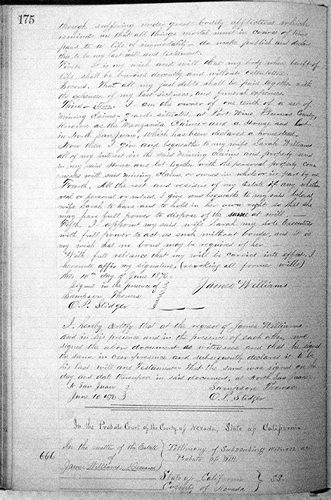 175
though suffering under great bodily afflictions which
reminds me that all things mortal must in course of time
pass to a life of immortality do make publish and declare
this to be my last will and testament
First. It is my wish and will that my body when bereft of
life shall be buried decently and without ostentation
Second. That all my just debts shall be paid together with
the expenses of my last sickness, and funeral expenses
Third. I am the owner of one tenth of a set of
mining claims situated at Port Wine, Sierra County,
known as the Claims and a house and lot
in North San Juan, which has been declared a homestead.
Now then I give and bequeathe to my wife Sarah Williams
all of my interest in the said mining claims and property and
in my said House and lot together with the personal property
with said mining claims or owned in whole or in part by me
Fourth. All the rest and residue of my estate of any whether
real or personal or mixed, I give and bequeathe to my said beloved
wife Sarah to have and to hold in her own right so that she
may have full power to dispose of the same at will
Fifth. I appoint my said wife Sarah my sole Executrix
with full power to act as such without bonds, as it is
my wish that no bond may be required of her.
With full reliance that my will be carried into effect, I
hereunto affix my signature, (revoking all former wills)
this 10th day of June 1876.
Signed in the presence of
James Williams
Sampson Thomas
O. P. Stidger
I hereby certify that at the request of James Williams
and in his presence and in the presence of each other, we
signed the above document as witnesses and that he signed
the same in our presence and subsequently declared it to be
his last will and Testament. That the same was signed on the
day and date therefore in said document, at North San Juan
N. San Juan
June 10 1876
Sampson Thomas
O. P. Stidger
In the Probate Court of the County of Nevada, State of California
666
In the matter of the Estate
of
James Williams Deceased
Testimony of Subscribing witness on
Probate of Will.
State of California
County of Nevada
SS.